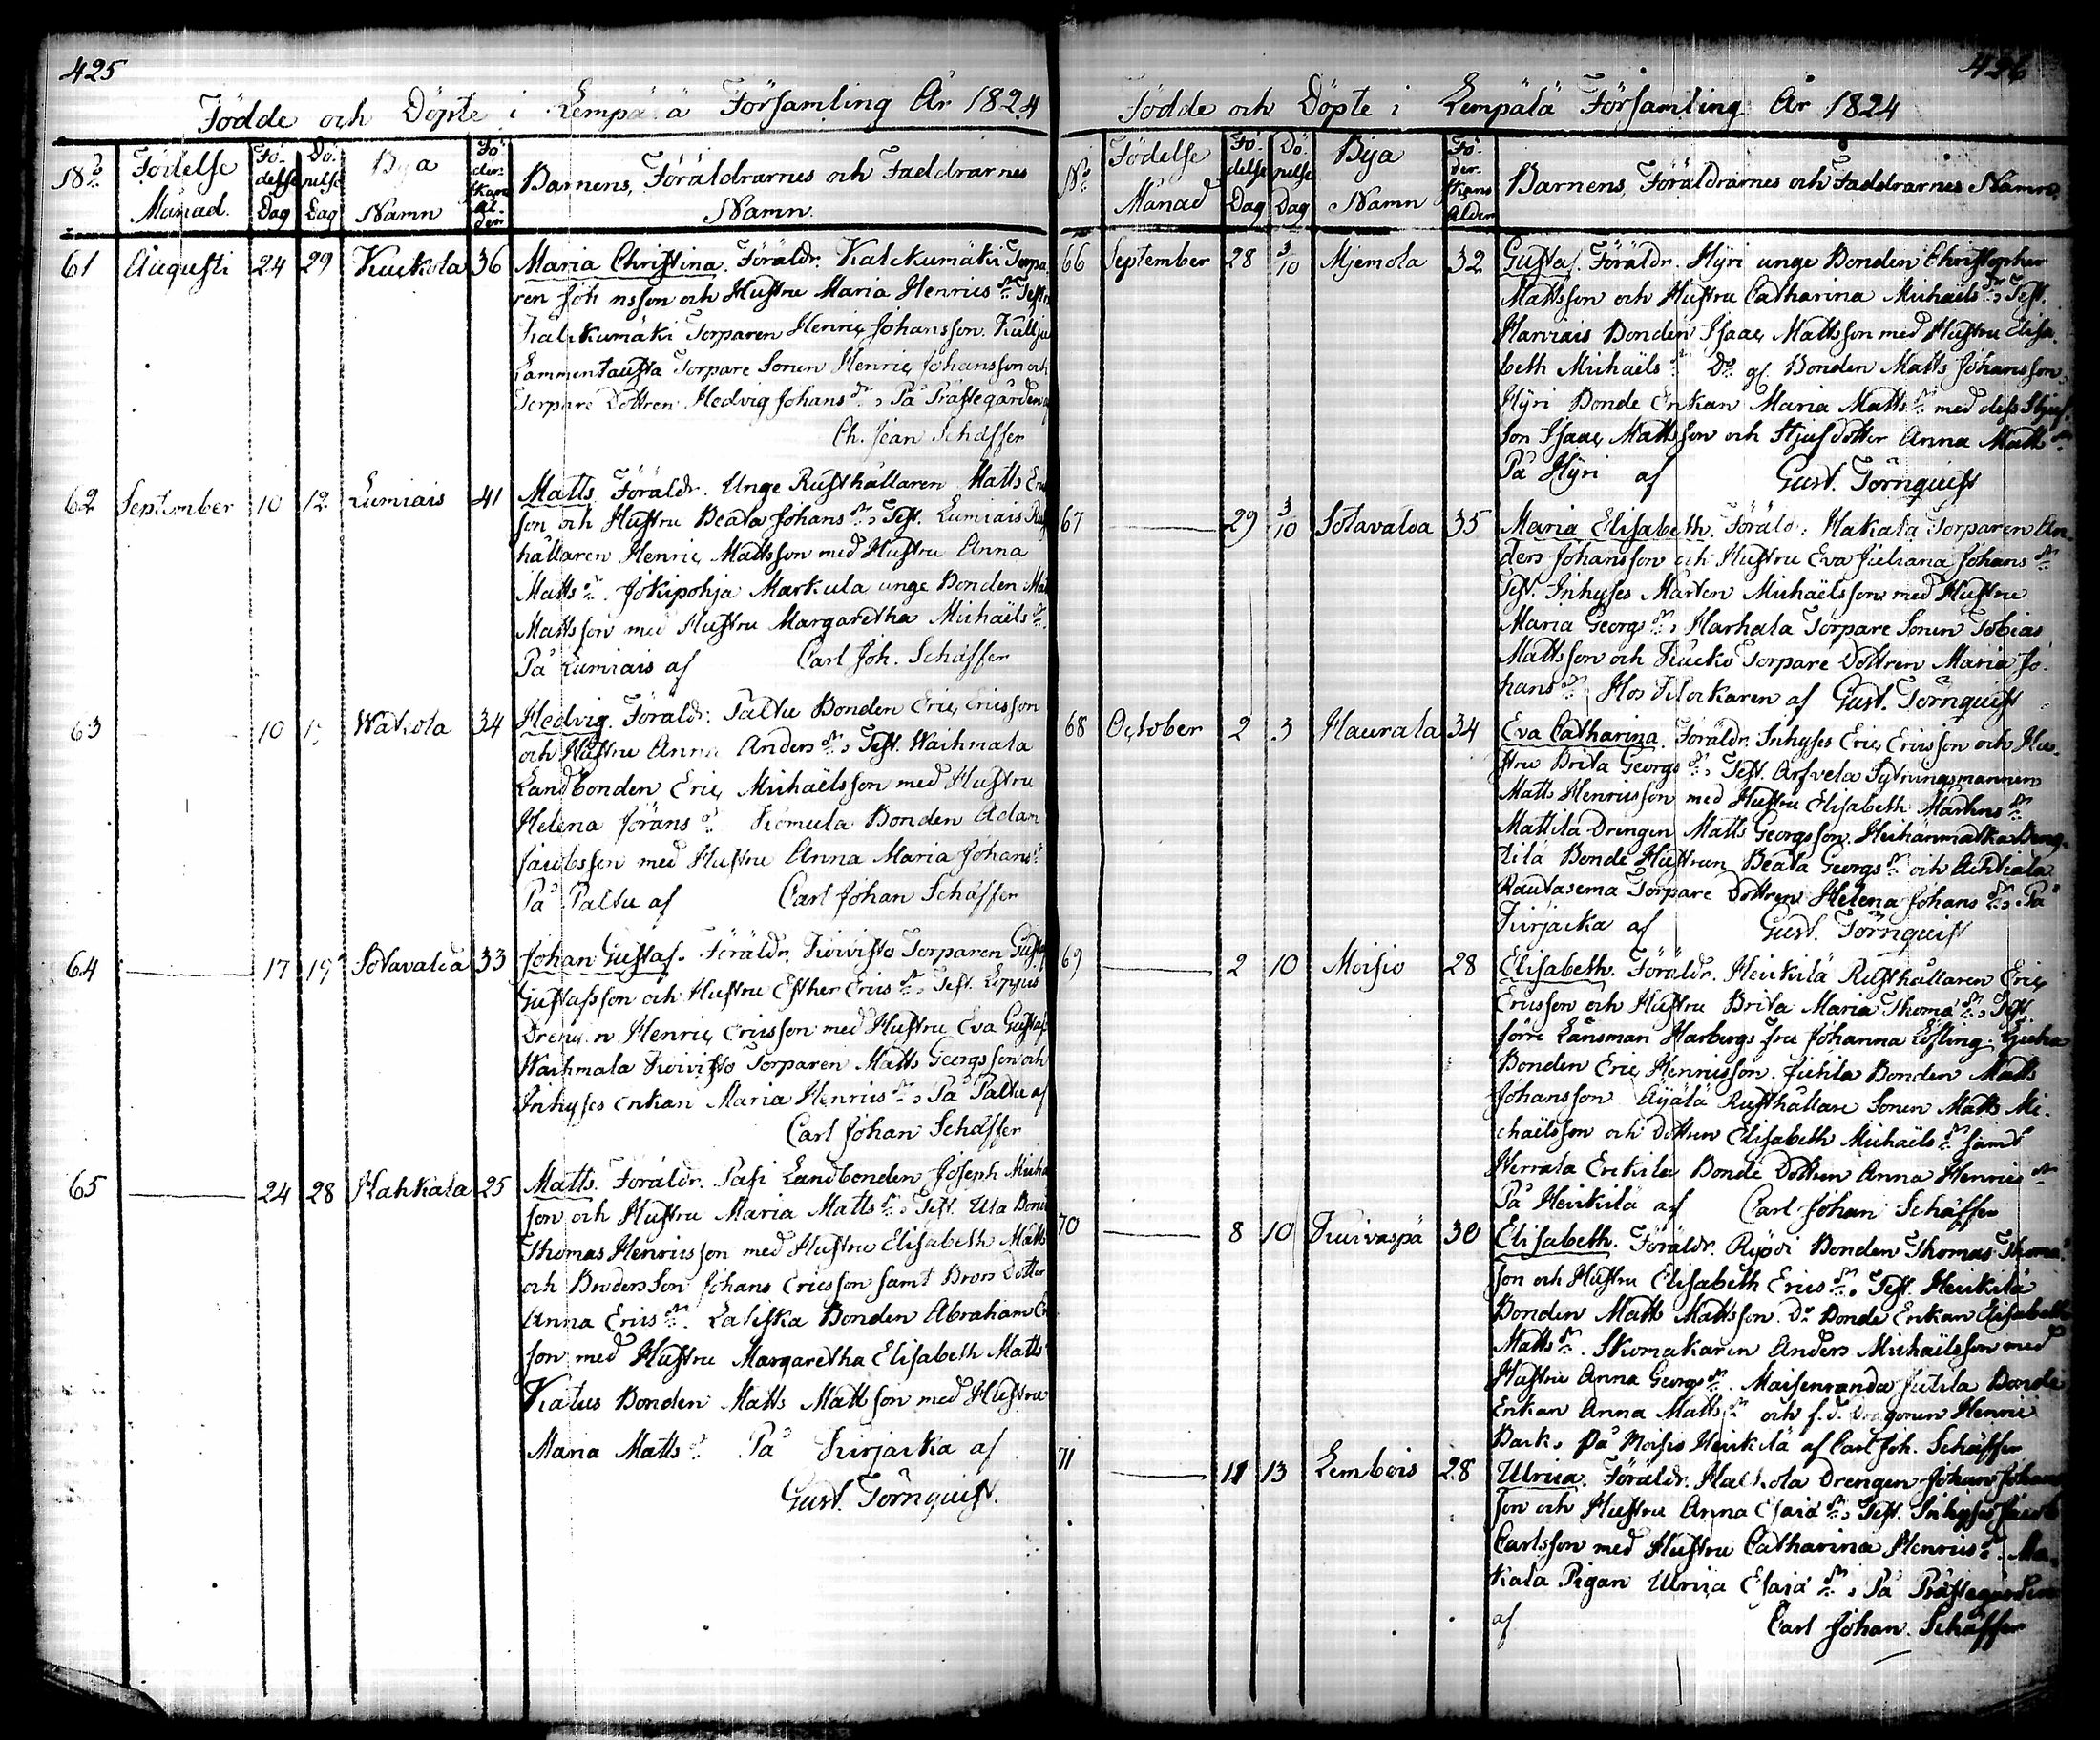 425
Födde och Döpte i Lempälä Församling År 1824
No Födelse Månad. Födelse Dag Döpelse Dag Bya Namn Föderskans Ålder Barnens, Föräldrarnes och Faddrarnes Namn.
61 Augusti 24 29 Kuckola 36 Maria Christina. Föräldr. Kalckumäki Torpa
ren Joh nsson och Hustru Maria Henricsdr, Test.
Kalckumäki Torparen Henric Johansson. Kulju
Lammentausta Torpare Sonen Henric Johansson och
Torpare Dottren Hedvig Johansdr, På Prästegården af
Ch. Jean Schäffer
62 September 10 12 Lumiais 41 Matts. Föräldr. Unge Rusthållaren Matts Eric
son och Hustru Beata Johansdr, Test. Lumiais Rust
hållaren Henric Mattsson med Hustru Anna
Mattsdr. Jokipohja Markula unge Bonden Matts
Mattsson med Hustru Margaretha Michaëlsdr.
På Lumiais af Carl Joh. Schäffer
63 10 Wakola 34 Hedvig. Föräldr. Paltu Bonden Eric Ericsson
och Hustru Anna Andersdr, Test. Waihmala
Landbonden Eric Michaëlsson med Hustru
Helena Göransdr Kiomula Bonden Adam
Jacobsson med Hustru Anna Maria Johansdr
På Paltu af Carl Johan Schäffer
64 17 19 Sotavalda 33 Johan Gustaf. Föräldr. Koivisto Torparen Gustaf
Gustafsson och Hustru Esther Ericsdr, Test. Loppus
Dreng n Henric Ericsson med Hustru Eva Gustafs
Waihmala Koivisto Torparen Matts Georgsson och
Inhyses Enkan Maria Henricsdr, På Paltu af
Carl Johan Schäffer
65 24 28 Hahkala 25 Matts. Föräldr. Pasi Landbonden Joseph Micha
son och Hustru Maria Mattsdr, Test. Uta Bond
Thomas Henricsson med Hustru Elisabeth Matts
och Broders Son Johans Ericsson samt Brors Dotter
Anna Ericsdr. Laliska Bonden Abraham Er
son med Hustru Margaretha Elisabeth Matts
Katus Bonden Matts Mattsson med Hustru
Maria Mattsdr På Kirjacka af
Gust. Törnquist.
426
Födde och Döpte i Lempälä Församling År 1824
No Födelse Månad Födelse Dag Döpelse Dag Bya Namn Föderskans Ålder Barnens, Föräldrarnes och Faddrarnes Namn.
66 September 28 3/10 Mjemola 32 Gustaf. Föräldr. Hyri unge Bonden Christopher
Mattsson och Hustru Catharina Michaëlsdr, Test.
Harviais Bonden Isaac Mattsson med Hustru Elisa
beth Michaëlsdr Do gl. Bonden Matts Johansson,
Hyri Bonde Enkan Maria Mattsdr med dess Stjuf
son Isaac Mattsson och Stjufdotter Anna Mattsdr
På Hyri af Gust. Törnquist
67 29 3/10 Sotavalda 35 Maria Elisabeth. Föräldr. Hakala Torparen An
ders Johansson och Hustru Eva Juliana Johansdr
Test. Inhyses Mårten Michaëlsson med Hustru
Maria Georgsdr, Harhala Torpare Sonen Tobias
Mattsson och Kucko Torpare Dottren Maria Jo
hansdr Hos Klockaren af Gust. Törnquist
68 October 2 3 Haurala 34 Eva Catharina. Föräldr. Inhyses Eric Ericsson och Hu
stru Brita Georgsdr, Test. Arfvela Sytningsmannen
Matts Henricsson med Hustru Elisabeth Mårtensdr
Mattila Drengen Matts Georgsson, Huhanmatka Beng
tilä Bonde Hustrun Beata Georgsdr och Achtiala
Rautasema Torpare Dottren Helena Johansdr, På
Kirjacka af Gust. Törnquist
69 2 10 Moisio 28 Elisabeth. Föräldr. Heickilä Rusthållaren Eric
Ericsson och Hustru Brita Maria Thomædr, Test.
förre Länsman Harbergs fru Johanna Löfling. Gucha
Bonden Eric Henricsson. Juckila Bonden Matts
Johansson Äyälä Rusthållare Sonen Matts Mi
chaëlsson och Dottren Elisabeth Michaëlsdr samt
Herrala Erickila Bonde Dottren Anna Henricsdr
På Heickilä af Carl Johan Schäffer
70 8 10 Kuivaspä 30 Elisabeth. Föräldr. Rypöi Bonden Thomas Thomæ
son och Hustru Elisabeth Ericsdr, Test. Heickilä
Bonden Matts Mattsson. Do Bonde Enkan Elisabeth
Mattsdr. Skomakaren Anders Michaëlsson med
Hustru Anna Georgsdr. Maisenranda Juckila Bonde
Enkan Anna Mattsdr och f.d. Dragonen Henric
Back, På Moisio Heickilä af Carl Joh. Schäffer
71 11 13 Lembois 28 Ulrica. Föräldr. Hackola Drengen Johan Johans
son och Hustru Anna Esaiædr, Test. Inhyses Jacob
Carlsson med Hustru Catharina Henricsdr. Ma
kala Pigan Ulrica Esaiædr, På Prästegården
af Carl Johan Schäffer